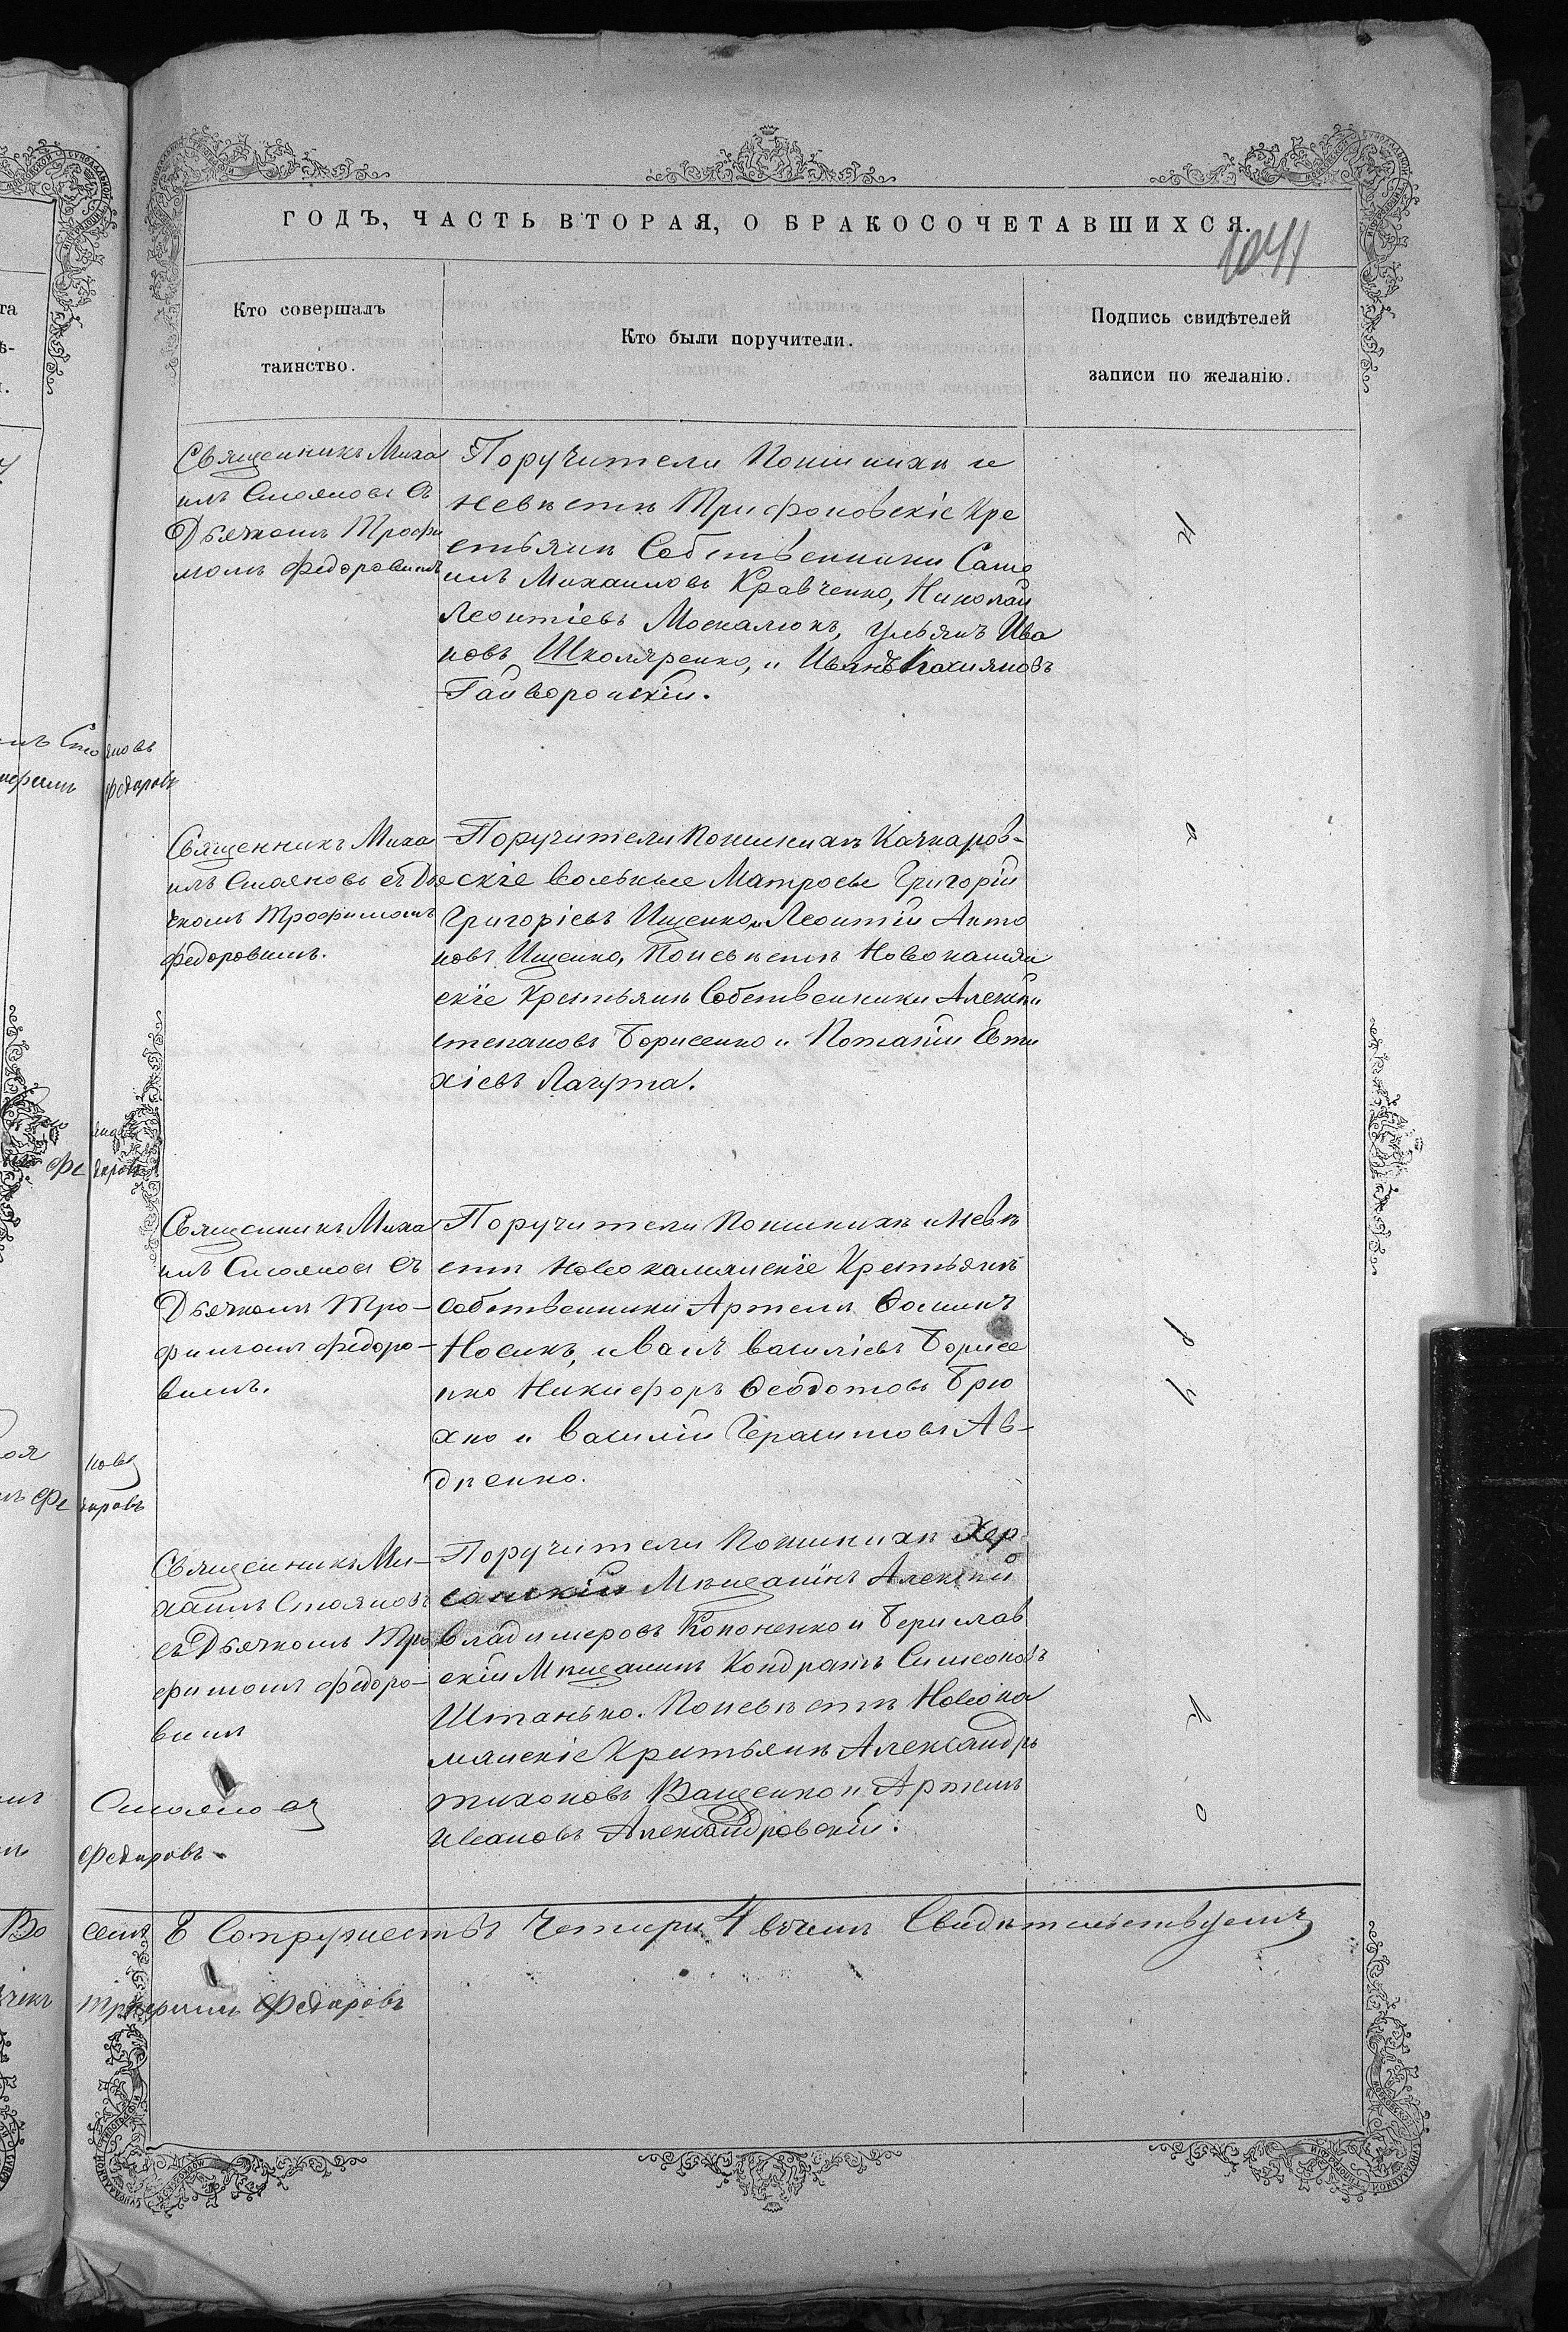 ГОДЪ, ЧАСТЬ ВТОРАЯ, О БРАКОСОЧЕТАВШИХСЯ.
1041
Кто совершалъ
таинство.
Кто были поручители.
Подпись свидѣтелей
записи по желанію.
Священникъ Миха
илъ Стояновъ съ
Дьячкомъ Трофи
момъ Федоровымъ
Поручители Пожиниху и
невѣстѣ Трифоновскіе Кре
стьянѣ Собственники Саме
илъ Михаиловъ Кравченко, Николай
Леонтіевъ Москалюкъ, Ульянъ Ива
новъ Школяренко, и Иванъ Касияновъ
Гайворонскій.
Священникъ Миха
илъ Стояновъ съ Дья
чкомъ Трофимомъ
Федоровымъ.
Поручители Пожинихѣ Качкаров-
скіе вольные Матросы Григорій
Григоріевъ Ищенко, и Леонтій Анто
новъ Ищенко, Поневѣстѣ Новокамян
скіе Крестьянѣ Собственники Алексѣй
степановъ Борисенко и Потапій Евти
хіевъ Лагута.
Священникъ Миха
илъ Стояновъ съ
Дьячкомъ Тро-
фимомъ Федоро-
вымъ.
Поручители Пожинихѣ и Невѣ
стѣ Новокамянскіе Крестьянѣ
Собственники Артемъ Фоминъ
Носикъ, иванъ василіевъ Борисе
нко Никифоръ Феодотовъ Брю
хно и василій Герасимовъ Ав-
дѣенко.
Священникъ Ми-
хаилъ Стояновъ
съ Дьячкомъ Тро
фимомъ Федоро-
вымъ
Поручители Пожинихѣ Хер-
сонскій Мѣщанинъ Алексѣй
Владимеровъ Кононенко и Берислав
скій Мѣщанинъ Кондратъ Симеоновъ
Штанько. Поневѣстѣ Новока
мянскіе Крестьянѣ Александръ
тихоновъ Ващенко и Артемъ
Ивановъ Александровскій.
Стояновъ
Федоровъ
семъ 8 Сопружествъ Четыри 4 въчемъ Свидѣтельствуемъ
трофимъ Федоровъ